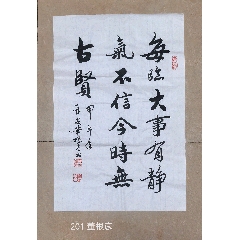 每临大事有靜
氣不信今時無
古賢
甲午年
201董根彦